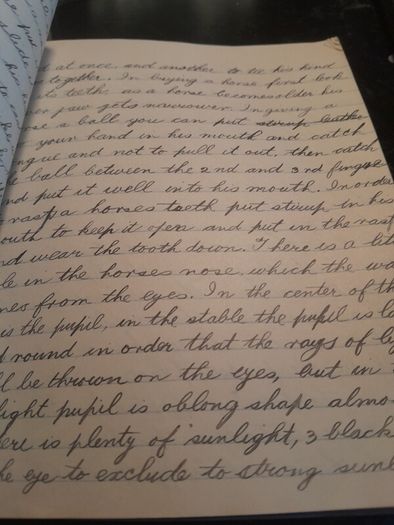 at once, and another to tie his hind
together. In buying a horse first look
its teeth, as a horse becomes older his
er jaw gets narrower. In giving a
se a ball you can put
your hand in his mouth and catch
ngue and not to pull it out, then catch
e ball between the 2nd and 3rd finger
nd put it well into his mouth. In order
rasp a horses teeth put stirup in his
outh to keep it open and put in the rasp
nd wear the tooth down. There is a litt
le in the horses nose, which the wa
mes from the eyes. In the center of th
is the pupil, in the stable the pupil is la
d round in order that the rays of lig
ll be thrown on the eyes, but in t
light pupil is oblong shape almo
ere is plenty of sunlight, 3 black
he eye to exclude to strong sunl